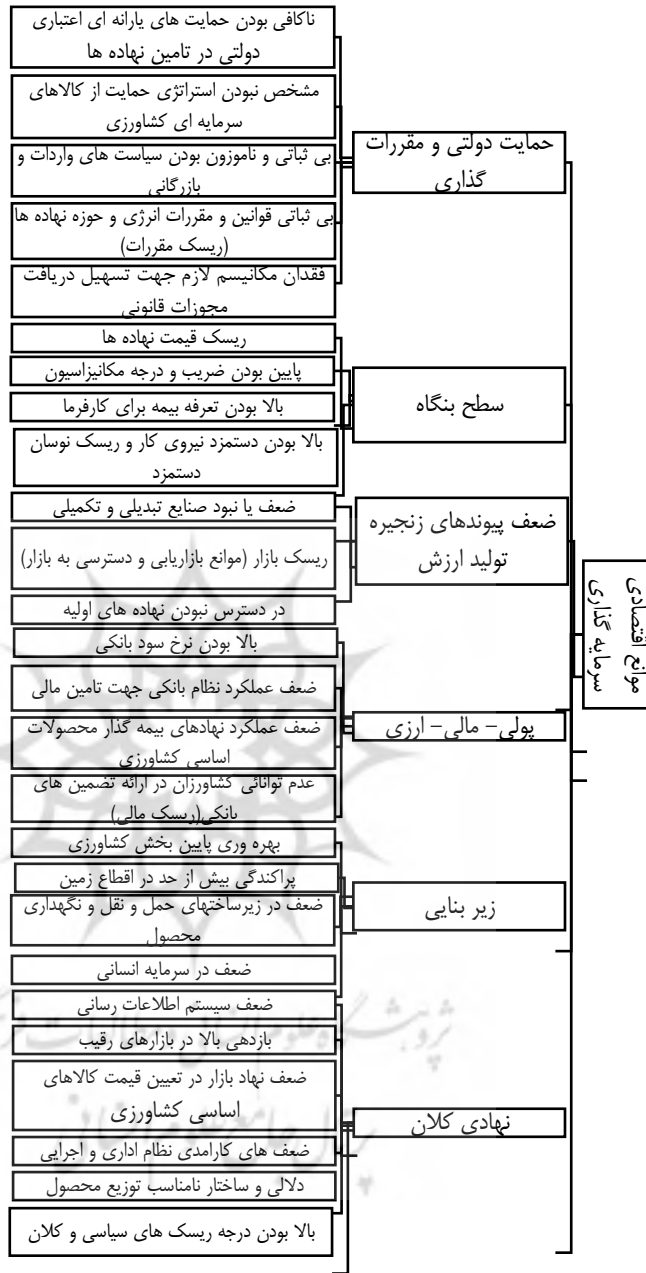 موانع اقتصادی
سرمایه گذاری
حمایت دولتی و مقررات
گذاری
ناکافی بودن حمایت های یارانه ای اعتباری
دولتی در تامین نهاده ها
مشخص نبودن استراتژی حمایت از کالاهای
سرمایه ای کشاورزی
بی ثباتی و ناموزون بودن سیاست های واردات و
بازرگانی
بی ثباتی قوانین و مقررات انرژی و حوزه نهاده ها
(ریسک مقررات)
فقدان مکانیسم لازم جهت تسهیل دریافت
مجوزات قانونی
سطح بنگاه
ریسک قیمت نهاده ها
پایین بودن ضریب و درجه مکانیزاسیون
بالا بودن تعرفه بیمه برای کارفرما
بالا بودن دستمزد نیروی کار و ریسک نوسان
دستمزد
ضعف پیوندهای زنجیره
تولید ارزش
ضعف یا نبود صنایع تبدیلی و تکمیلی
ریسک بازار (موانع بازاریابی و دسترسی به بازار)
در دسترس نبودن نهاده های اولیه
پولی- مالی- ارزی
بالا بودن نرخ سود بانکی
ضعف عملکرد نظام بانکی جهت تامین مالی
ضعف عملکرد نهادهای بیمه گذار محصولات
اساسی کشاورزی
عدم توانائی کشاورزان در ارائه تضمین های
بانکی(ریسک مالی)
زیر بنایی
بهره وری پایین بخش کشاورزی
پراکندگی بیش از حد در اقطاع زمین
ضعف در زیرساختهای حمل و نقل و نگهداری
محصول
ضعف در سرمایه انسانی
ضعف سیستم اطلاعات رسانی
نهادی کلان
بازدهی بالا در بازارهای رقیب
ضعف نهاد بازار در تعیین قیمت کالاهای
اساسی کشاورزی
ضعف های کارامدی نظام اداری و اجرایی
دلالی و ساختار نامناسب توزیع محصول
بالا بودن درجه ریسک های سیاسی و کلان